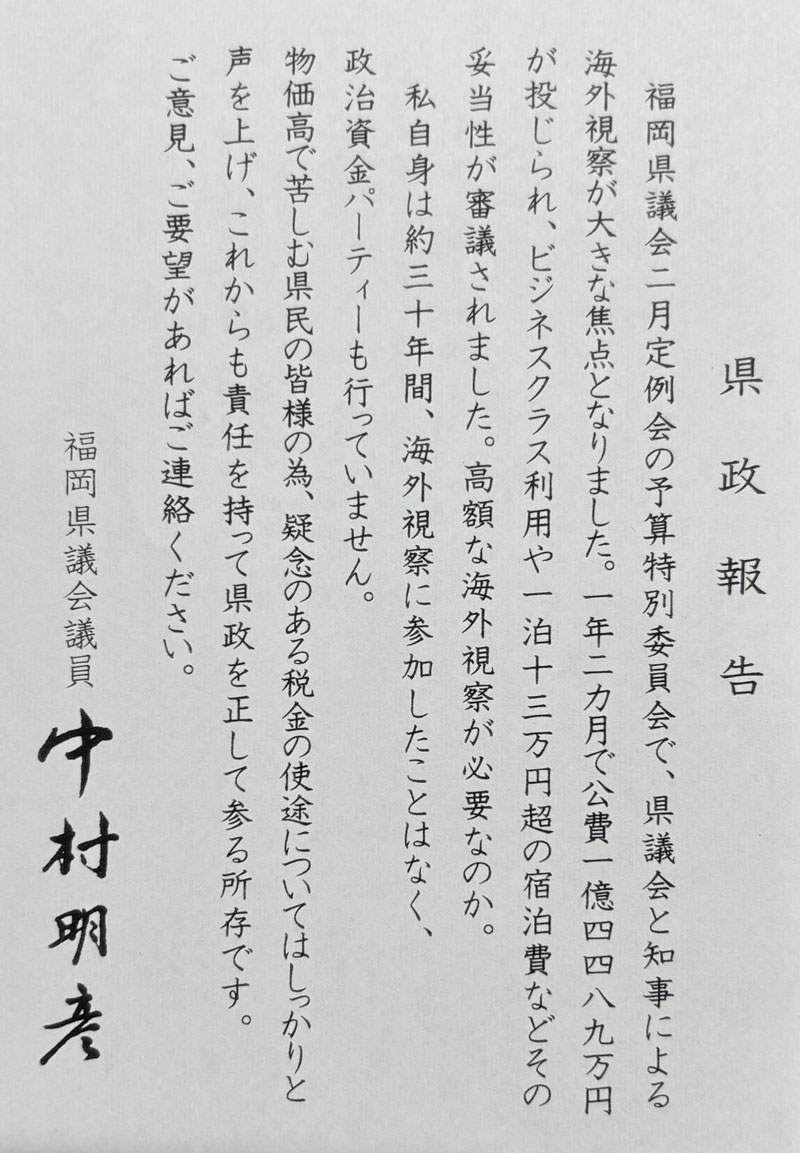 県政報告
福岡県議会二月定例会の予算特別委員会で、県議会と知事による
海外視察が大きな焦点となりました。一年二カ月で公費一億四四八九万円
が投じられ、ビジネスクラス利用や一泊十三万円超の宿泊費などその
妥当性が審議されました。高額な海外視察が必要なのか。
私自身は約三十年間、海外視察に参加したことはなく、
政治資金パーティーも行っていません。
物価高で苦しむ県民の皆様の為、疑念のある税金の使途についてはしっかりと
声を上げ、これからも責任を持って県政を正して参る所存です。
ご意見、ご要望があればご連絡ください。
福岡県議会議員 中村明彦